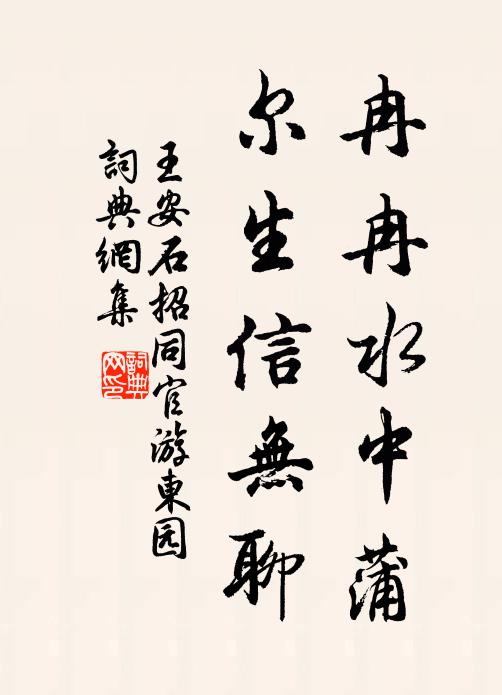 冉冉水中蒲
尔生信無聊
王安石招同官游東园
詞典網集
詞典网印